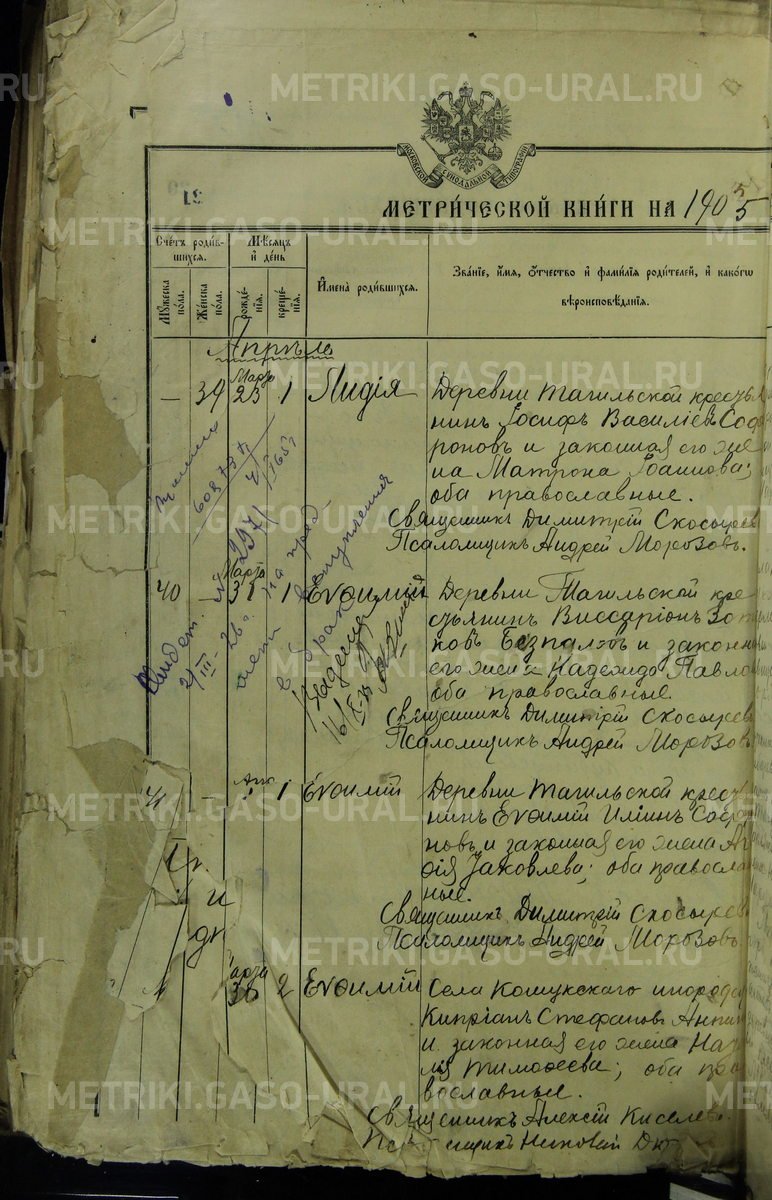 METRIKI.GASO-URAL.RU
МОСКОВСКОЙ СѴНОДАЛЬНОЙ ТИПОГРАФІИ
МЕТРИ́ЧЕСКОЙ КНИ́ГИ НА 1905
Сче́тъ роди́в-
шихся.
Мꙋжеска по́ла.
Же́нска по́ла.
Мѣ́сяцъ
и҆ де́нь
рожде́-
нїя.
креще́-
нїя.
И҆мена̀ роди́вшихся.
Зва́нїе, и҆́мя, ѻ҆́тчество и҆ фами́лїя роди́телей, и҆ како́гѡ
вѣроисповѣ́данїя.
Апрѣль
— 39 Марта 23 1 Лидія
Деревни Тагильской кресть
нинъ Іосифъ Василіевъ Соф
роновъ и законная его же
на Матрона Іоаннова;
оба православные.
Священникъ Димитрій Скосырев
Псаломщикъ Андрей Морозовъ.
40 — Марта 31 1 Евѳимій
Деревни Тагильской кре
стьянинъ Виссаріонъ Зо
ковъ Безпаловъ и законн
его жена Надежда Павло
оба православные.
Священникъ Димитрій Скосырев
Псаломщикъ Андрей Морозовъ
41 — 1 Евѳимій
Деревни Тагильской крест
нинъ Евѳимій Иліинъ Софро
новъ и законная его жена
дія Іаковлева; оба православ
ные.
Священникъ Димитрій Скосырев
Псаломщикъ Андрей Морозовъ
Марта 30 2 Евѳимій
Села Кошукскаго инород
Кипріанъ Стефановъ
и законная его жена На
лія Тимоѳеева; оба пра
вославные.
Священникъ Алексій Киселев
Николай
Свидет.
2/III-26 г.
на пред
мет вступления
в брак